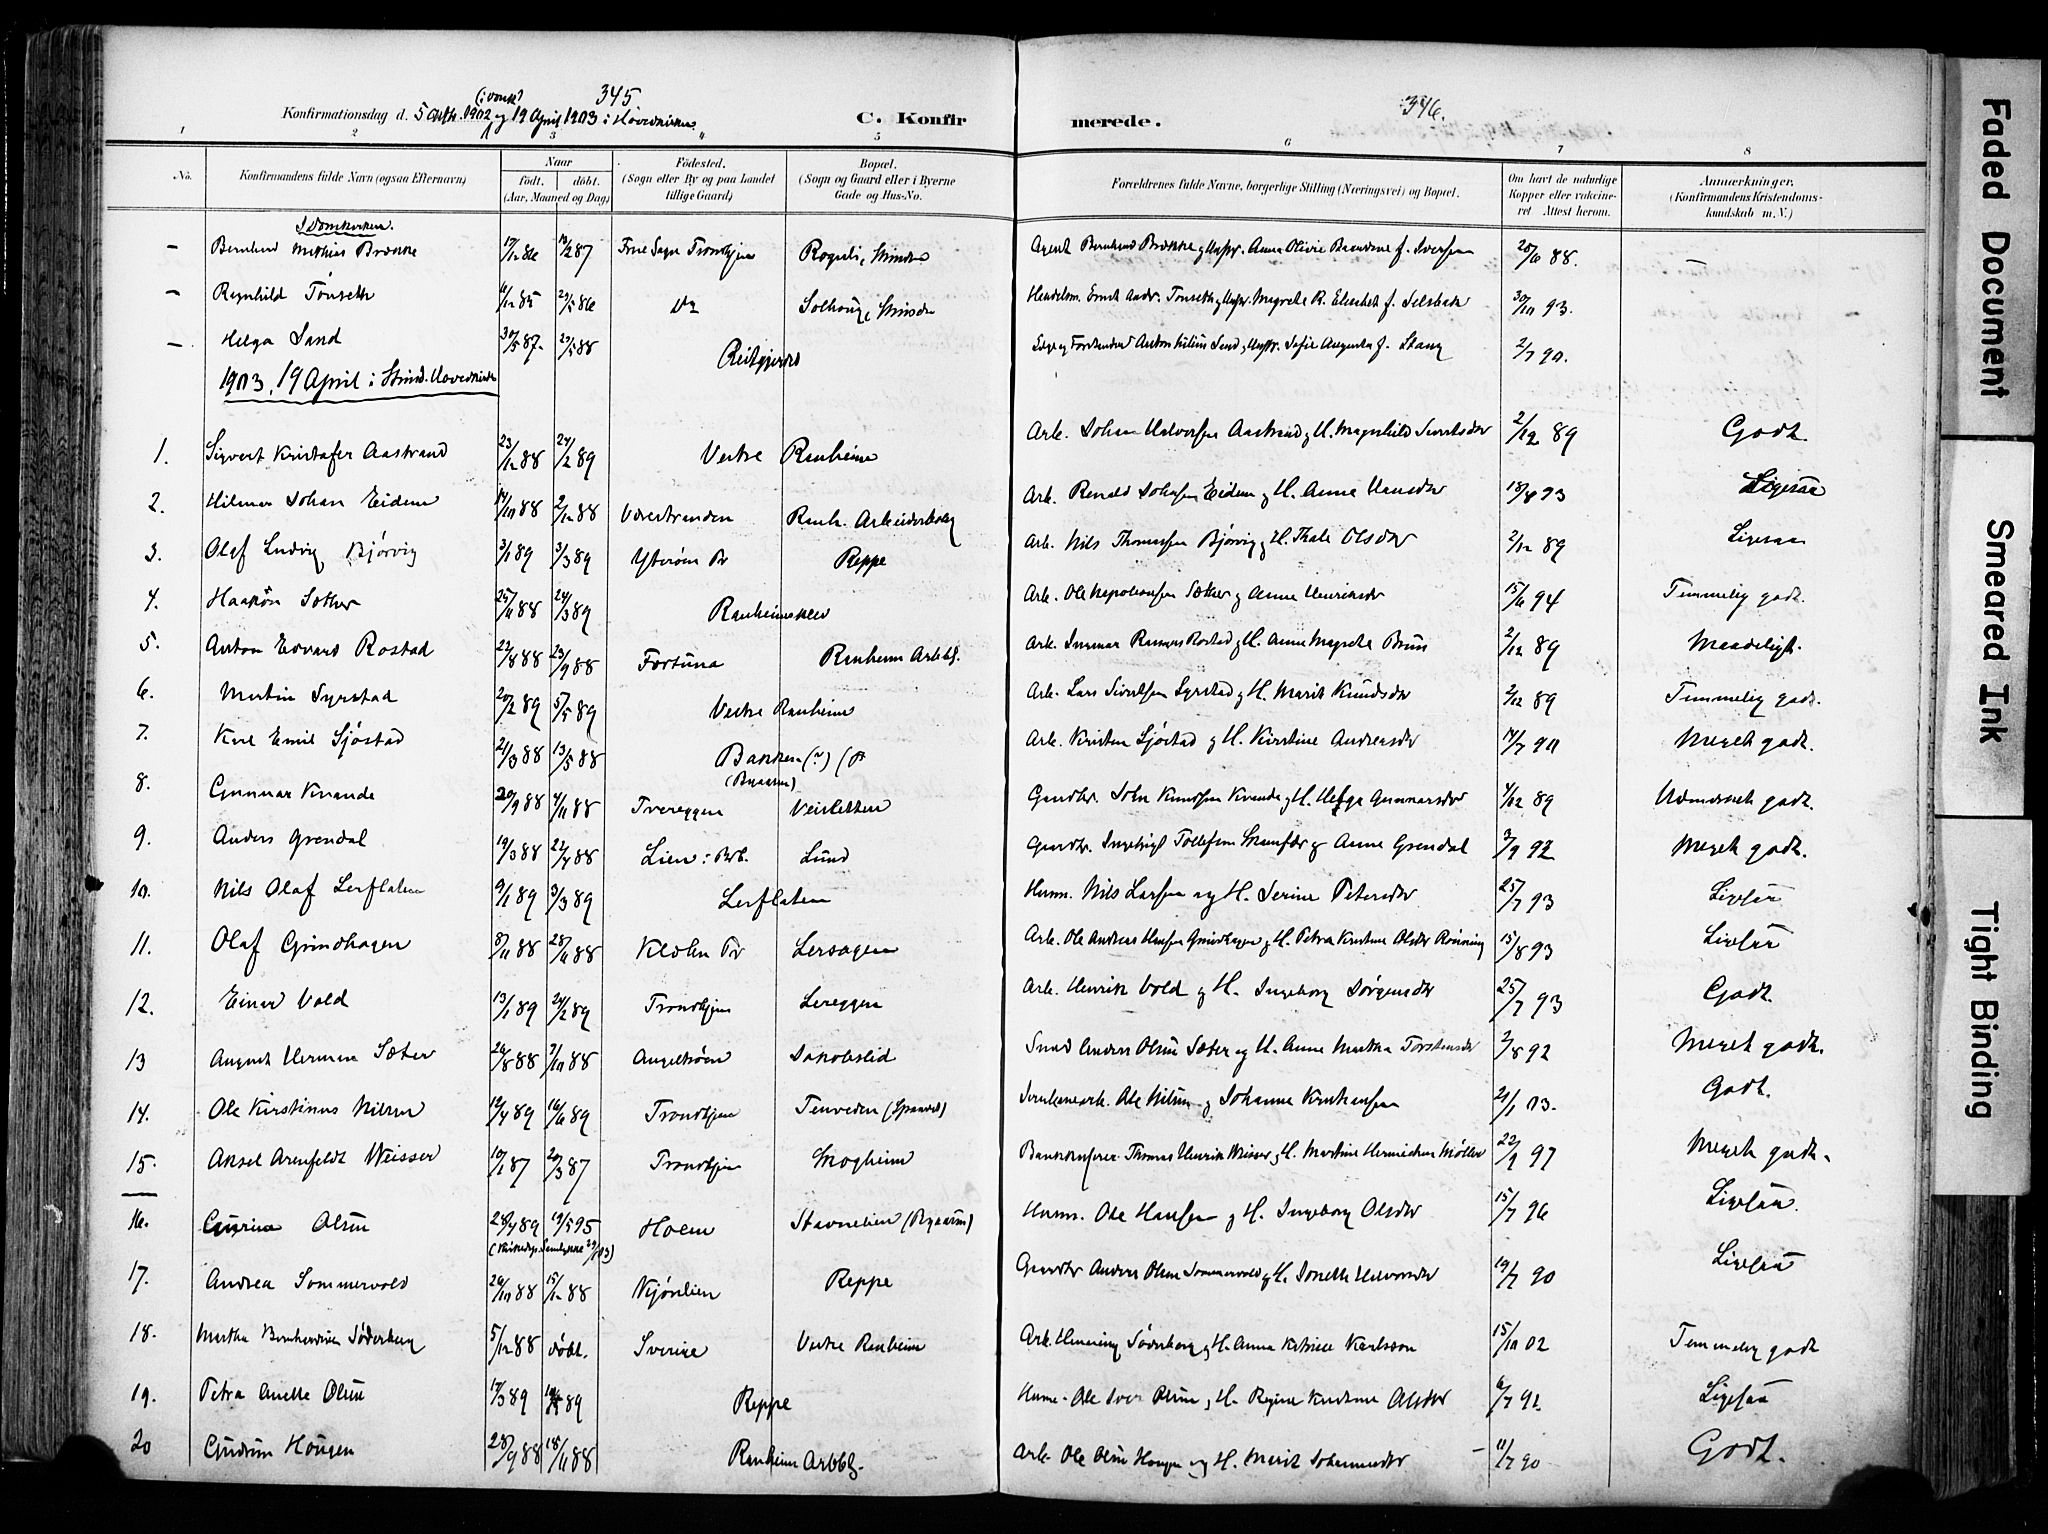 345
346.
(i Domk)
Konfirmationsdag d. 5 Oktbr. 1902 og 19 April 1903 i Hovedkirken
C. Konfirmerede.
1 2 3 5 6 7 8
No.
Konfirmandens fulde Navn (ogsaa Efternavn)
Naar
født. døbt.
(Aar, Maaned og Dag)
Fødested.
(Sogn eller By og paa Landet
tillige Gaard)
Bopæl.
(Sogn og Gaard eller i Byerne
Gade og Hus-No.
Forældrenes fulde Navne, borgerlige Stilling (Næringsvei) og Bopæl.
Om havt de naturlige
Kopper eller vakcine-
ret Attest herom.
Anmærkninger.
(Konfirmandens Kristendoms-
kundskab m. V.)
I Domkirken.
– Bernhard Mathias Brække 17/12 86 /2 87 Frue Sogn Trondhjem Rognli, Strinden Agent Bernhard Brække og Hustr. Anna Olivie f. Iversen 25/6 88. –
– Ragnhild Tønseth 11/12 85 29/5 86 Do Solhaug, Strinden Handelsm. Ernst Andr. Tønseth og Hustr. Magrete R. Elisabeth f. Selsbak 30/10 93.
– Helga Sand 30/5 87. 29/5 88 Reitgjerdet Anton Julius Sand og Hustr. Sofie Augusta f. Stang 2/7 90.
1903, 19 April i Strind. Hovedkirke
1. Sigvert Kristofer Aastrand 23/12 88 24/2 89 Vestre Ranheim Arb. Johan Halvorsen Aastrand og H. Magnhild Sivertsdtr 2/12 89 Godt.
2. Hilmar Johan Eidem 14/10 88 2/12 88 Værestranden Ranh. Arbeiderbolig Arb. Renald Johansen Eidem og H. Anna Hansdtr 18/8 93 Ligesaa
3. Olaf Ludvig Bjørvig 3/1 89 3/3 89 Ytterøen Pr Reppe Arb. Nils Thomassen Bjørvig og H. Thale Olsdtr 2/12 89 Ligesaa
4. Haakon Sæther 25/11 88 24/3 89 Ranheimsklev Arb. Ole Napoleonsen Sæther og Anna Henriksdtr 15/6 94 Temmelig godt.
5. Anton Edvard Rostad 22/8 88 23/9 88 Fortuna Ranheim Arbbl. Arb. Ingmar Rasmus Rostad og H. Anne Magreta Bruun 2/12 89 Maadeligt.
6. Martin Syrstad 20/2 89 5/5 89 Vestre Ranheim Arb. Lars Sivertsen Syrstad og H. Marit Knudsdtr 2/12 89 Temmelig godt.
7. Karl Emil Sjøstad 21/3 88 13/5 88 Bakken (v) (P Arb. Kristen Sjøstad og H. Kirstine Andreasdtr 14/7 90 Meget godt.
8. Gunnar Kvande 20/9 88 4/11 88 Tvereggen (Byaasen) Veisletten Gaardbr. John Knudsen Kvande og H. Helga Gunnarsdtr 4/12 89 Udmærket godt.
9. Anders Grendal 19/3 88 22/4 88 Lien i Brb. Lund Gaardbr. Ingebrigt Tollefsen og Anne Grendal 3/9 92 Meget godt.
10. Nils Olaf Lerflaten 9/1 89 3/3 89 Lerflaten Husm. Nils Larsen og H. Serine Petersdtr 25/7 93 Ligesaa
11. Olaf Grindhagen 8/11 88 28/11 88 Klæbu Pr Lersagen Arb. Ole Andreas Hansen Grindhagen og H. Petra Kirstine Olsdtr Rønning 15/8 93 Ligesaa
12. Einar Vold 13/1 89 24/2 89 Trondhjem Lereggen Arb. Henrik Vold og H. Ingeborg Jørgensdtr 25/7 93 Godt.
13 August Herman Sæter 26/8 88 7/10 88 Angeltrøen Jakobslid Smed Anders Olsen Sæter og H. Anne Martha Torstensdtr 2/8 92 Meget godt.
14. Ole Kirstinus Nilsen 19/4 89 16/6 89 Trondhjem Tenveden (Spanvel) Jernbanearb. Ole Nilsen og Johanna Kristiansen 21/1 03. Godt.
15. Aksel Arenfeldt Weisser 10/1 87 20/3 87 Trondhjem Skogheim Bankkasserer Thomas Henrik Weisser og H. Martine Møller 22/9 97 Meget godt.
16. Olsen 28/4 89 19/5 95 Holm Stavnelien (Byaasen) Husm. Ole Hansen og H. Ingeborg Olsdtr 15/7 96 Ligesaa.
17. Andrea Sommervold 26/10 88 15/12 88 Kjønlien Reppe Gaardbr Anders Olsen Sommervold og H. Jonette Halvorsdtr 19/7 90 Ligesaa
18. Martha Bernhardine Søderberg 5/12 88 døbt. Sverige Vestre Ranheim Arb. Henning Søderberg og H. Anna Katrine Karlsson 15/10 02 Temmelig godt
19. Petra Anette Olsen 17/3 89 89 Reppe Husm. Ole Iver Olsen og H. Regine Kristine Olsdtr 6/7 91. Ligesaa
20 Gudrun Hougen 28/9 88 18/11 88 Ranheim Arbbl. Arb. Ole Olsen Hougen og H. Marit Johannesdtr – 11/7 90 Godt.
Faded Document
Smeared Ink
Tight Binding